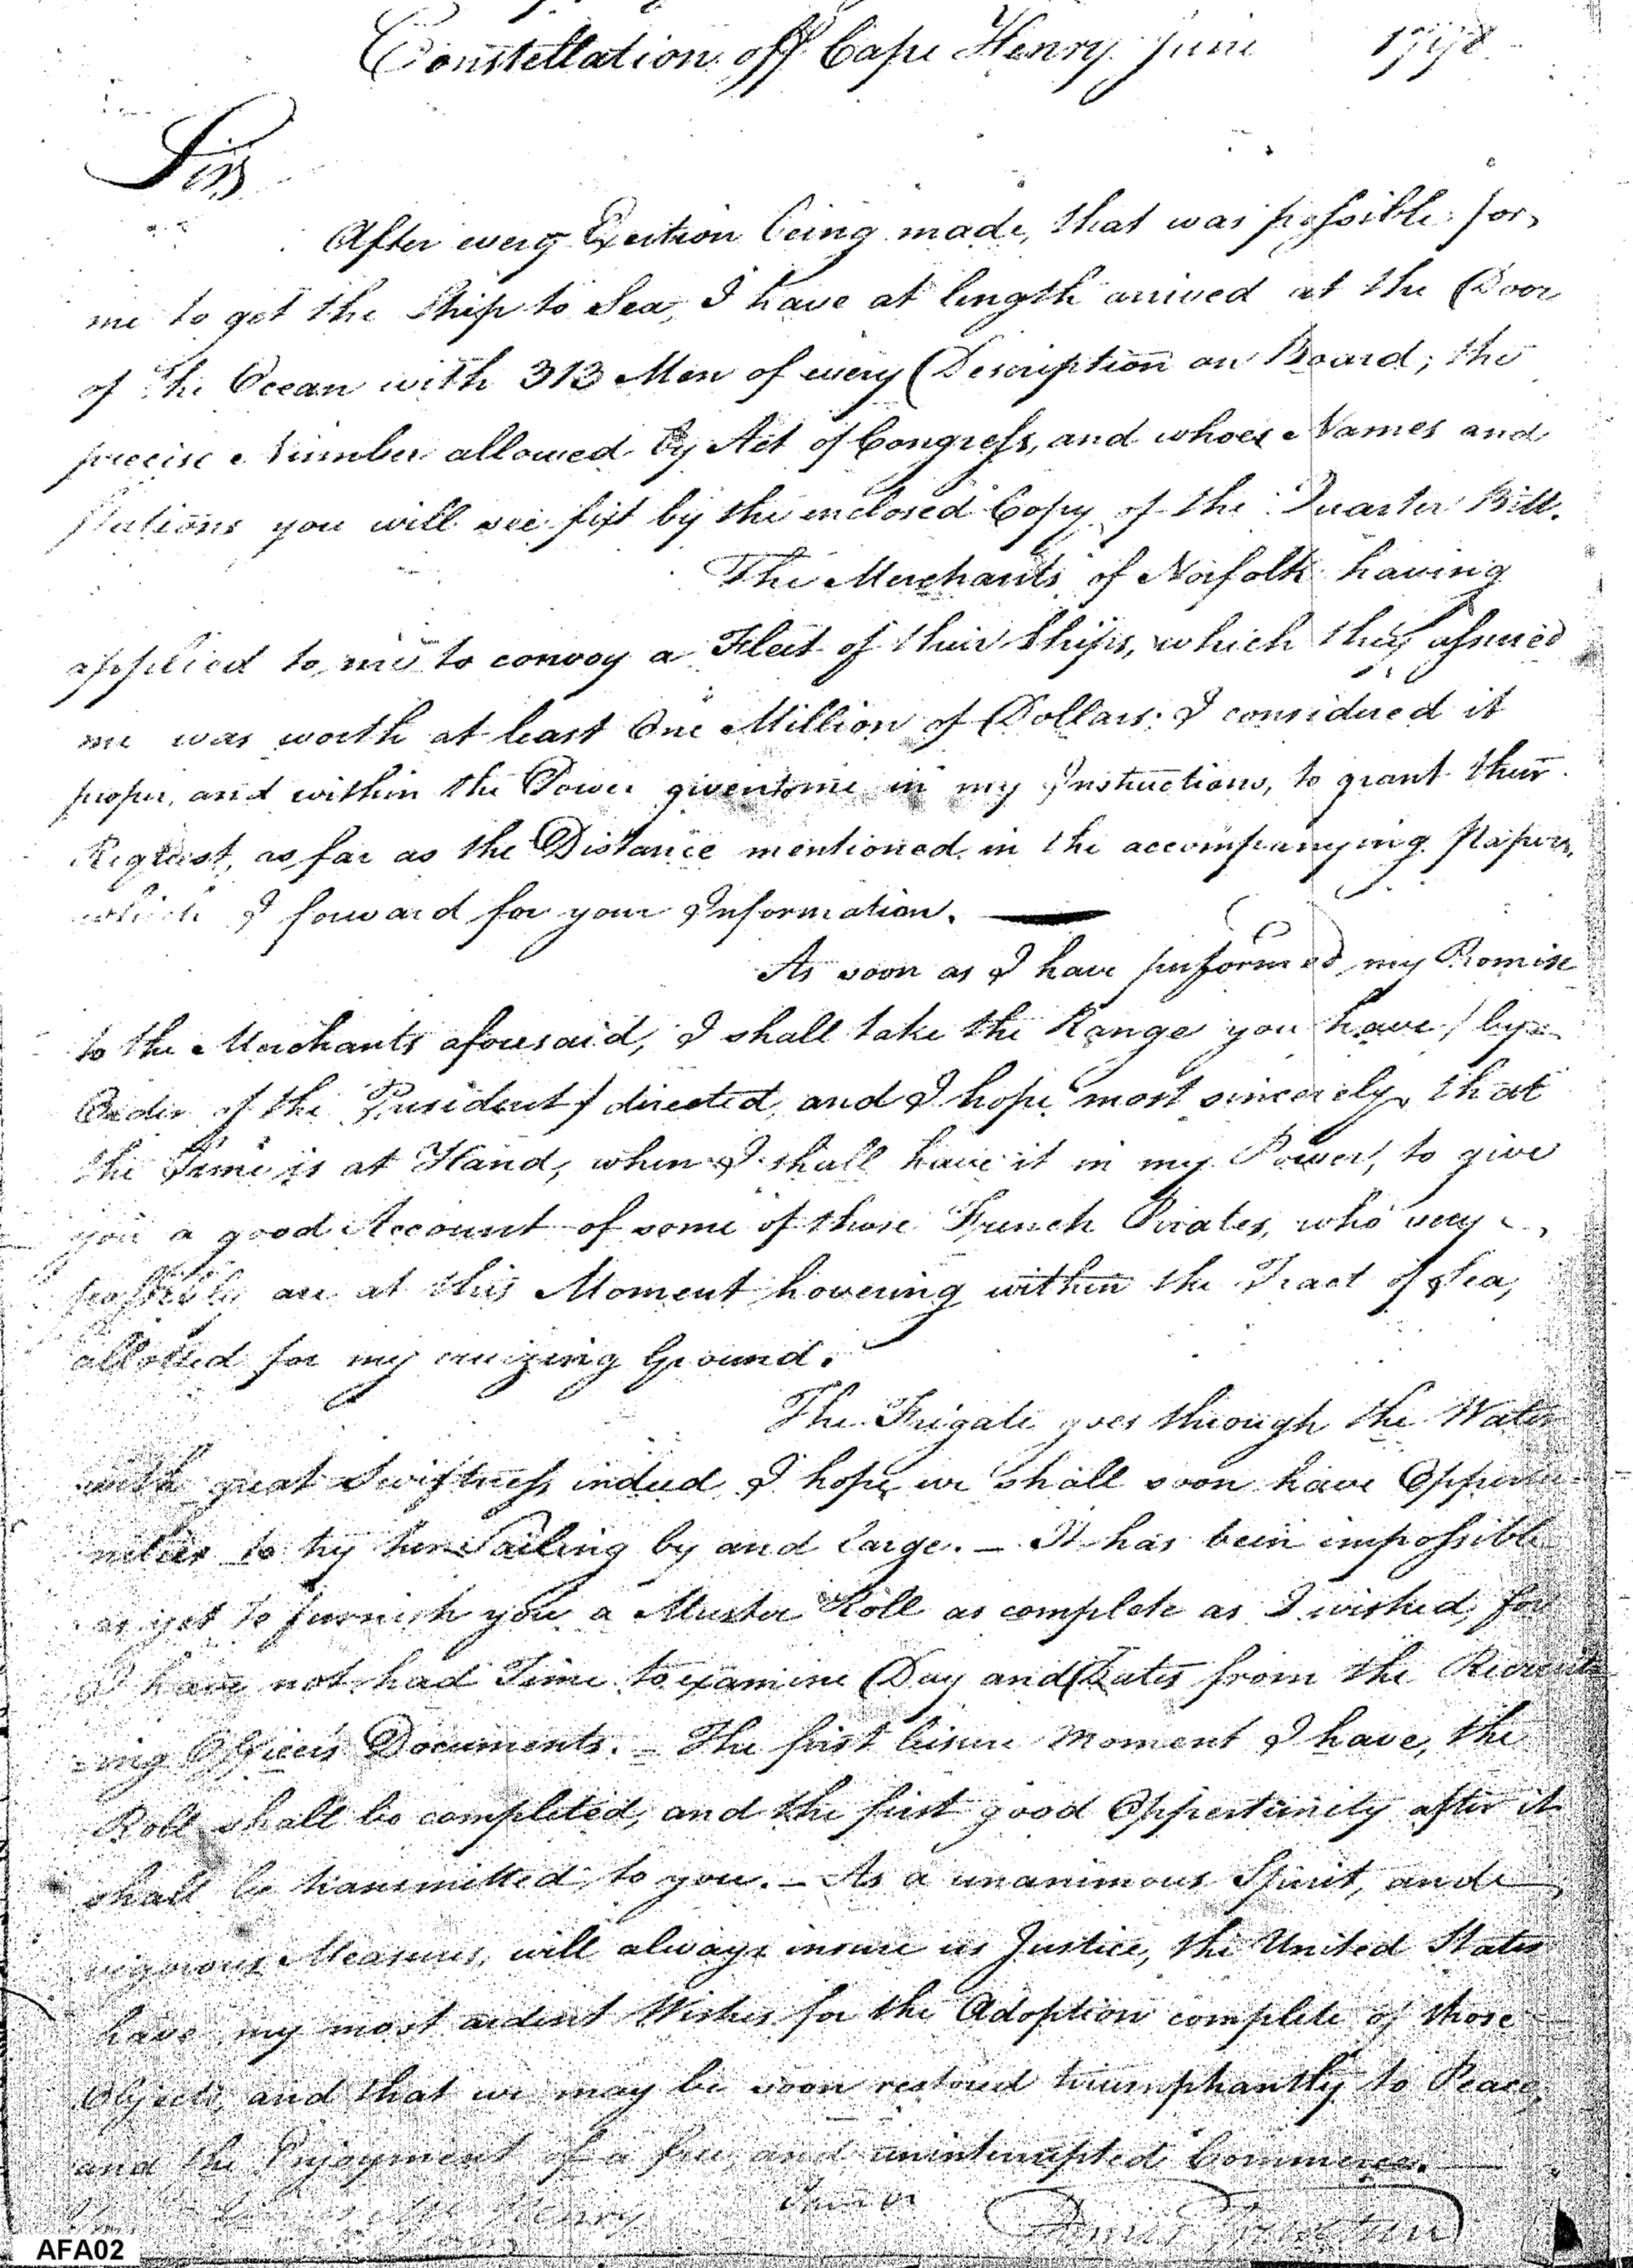 Constellation off Cape Henry June 1798
Sir
After every Exertion being made, that was possible for
me to get the Ship to Sea, I have at length arrived at the Door
of the Ocean with 313 Men of every Description on Board; the
precise Number allowed by Act of Congress, and whoes Names and
Stations you will see fixt by the enclosed Copy of the Quarter Bill.
The Merchants of Norfolk having
applied to me to convoy a Fleet of their Ships, which they assured
me was worth at least One Million of Dollars: I considered it
proper, and within the Power given to me in my Instructions, to grant their
Request, as far as the Distance mentioned in the accompanying Papers,
which I forward for your Information.
As soon as I have performed my Promise
to the Merchants aforesaid, I shall take the Range you have / by
Order of the President / directed, and I hope most sincerely, that
the Time is at Hand, when I shall have it in my Power, to give
you a good Account of some of those French Pirates, who very
possibly are at this Moment hovering within the Tract of Sea,
allotted for my cruizing Ground.
The Frigate goes through the Water
with great Swiftness indeed, I hope we shall soon have Opportu-
nities to try her Sailing by and large. – It has been impossible
as yet to furnish you a Muster Roll as complete as I wished, for
I have not had Time to examine Day and Dates from the Recruit-
-ing Officer's Documents. – The first leisure Moment I have, the
Roll shall be completed, and the first good Oppertunity after it
shall be transmitted to you. – As a unanimous Spirit, and
vigorous Measures, will always insure us Justice, the United States
have my most ardent Wishes for the Adoption complete of those
Objects, and that we may be soon restored triumphantly to Peace,
and the Enjoyment of a free and uninterrupted Commerce.
James McHenry
Thomas Truxtun
AFA02